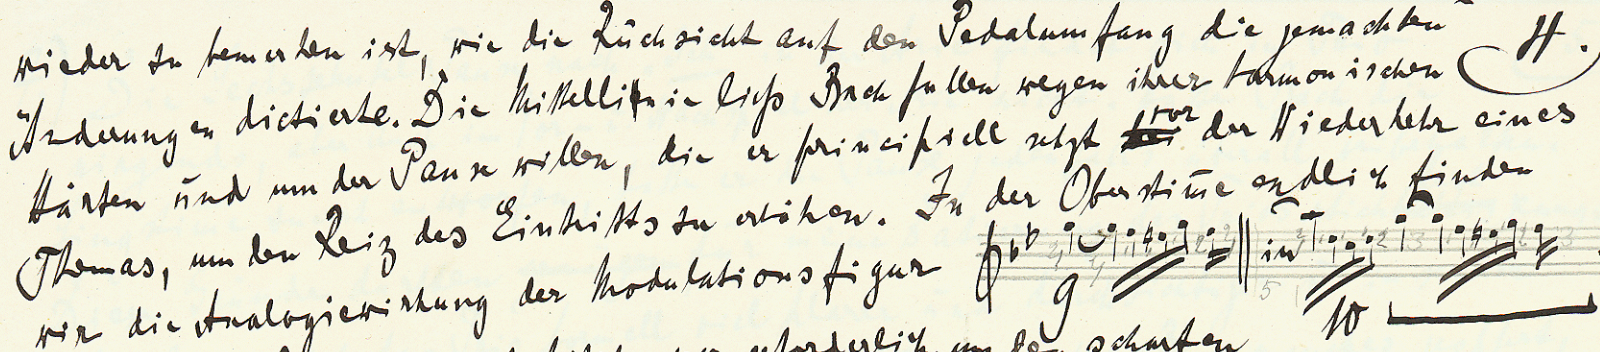 wieder zu bemerken ist, wie die Rücksicht auf den Pedalumfang die gemachten H.
Änderungen dictierte. Die Mittellinie ließ Bach fallen wegen ihrer harmonischen
Härten und um der Pause willen, die er principiell setzt vor der Wiederkehr eines
Themas, um den Reiz des Eintritts zu erhöhen. In der Oberstim̅e endlich finden
wir die Analogiewirkung der Modulationsfigur 9 in 10
erforderlich um den scharfen